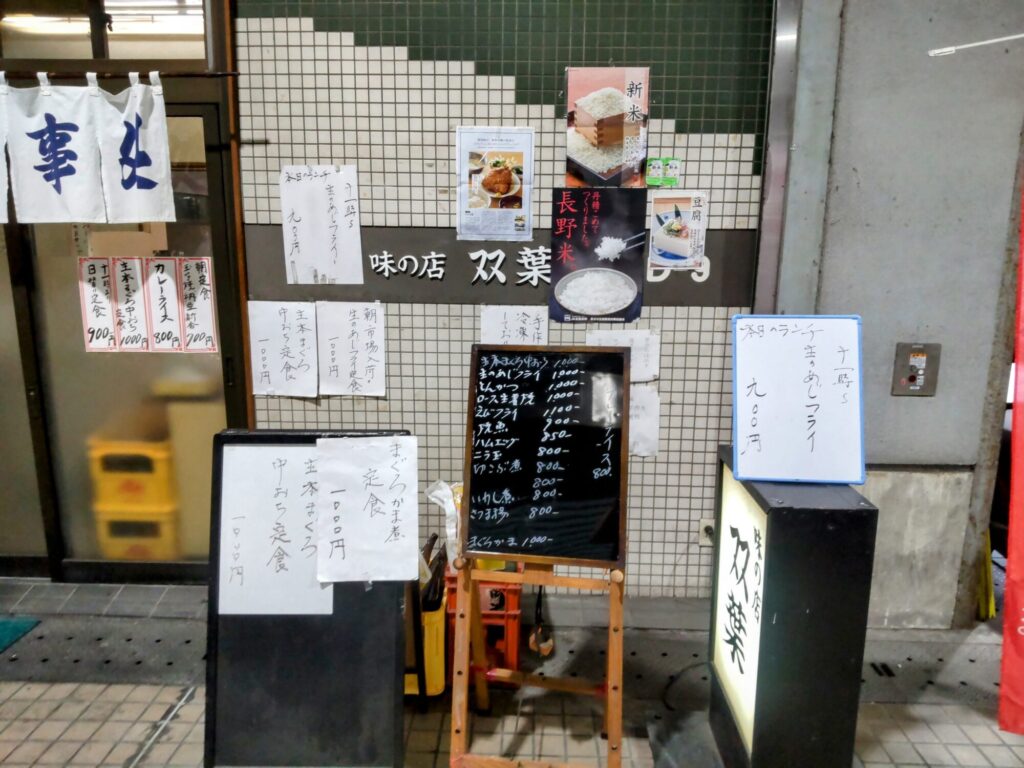 事
朝定食
700円
カレーライス
800円
生本まぐろ中おち
定食
1000円
十一時より
日替り定食
900円
本日のランチ
十一時〜
生のあじフライ
九〇〇円
味の店 双葉
新米
丹精こめて
つくりました。
長野米
豆腐
生本まぐろ
中おち定食
一〇〇〇円
朝市場入荷の
生のあじフライ定食
一〇〇〇円
手作
冷凍
まぐろかま煮
定食
一〇〇〇円
生本まぐろ
中おち定食
一〇〇〇円
生本まぐろ中おち 1,000-
生のあじフライ 1,000-
とんかつ 1,000-
ロース生姜焼 1,000-
えびフライ 1,100-
焼魚 900-
ハムエッグ 850-
ニラ玉 800-
切こぶ煮 800-
800-
いわし煮 800-
さつま揚 800-
まぐろかま 1,000-
イス
800.
本日のランチ
十一時〜
生のあじフライ
九〇〇円
味の店
双葉